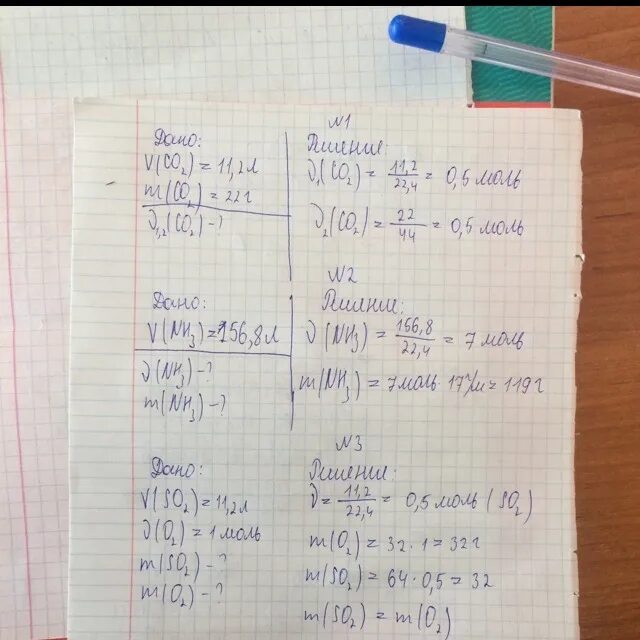 №1
Дано:
V(CO₂) = 11,2 л
m(CO₂) = 22 г
ν₁,₂(CO₂) - ?
Решение:
ν₁(CO₂) = 11,2/22,4 = 0,5 моль
ν₂(CO₂) = 22/44 = 0,5 моль
№2
Дано:
V(NH₃) = 156,8 л
ν(NH₃) - ?
m(NH₃) - ?
Решение:
ν(NH₃) = 156,8/22,4 = 7 моль
m(NH₃) = 7 моль · 17 г/м = 119 г
№3
Дано:
V(SO₂) = 11,2 л
ν(O₂) = 1 моль
m(SO₂) - ?
m(O₂) - ?
Решение:
ν = 11,2/22,4 = 0,5 моль (SO₂)
m(O₂) = 32 · 1 = 32 г
m(SO₂) = 64 · 0,5 = 32
m(SO₂) = m(O₂)